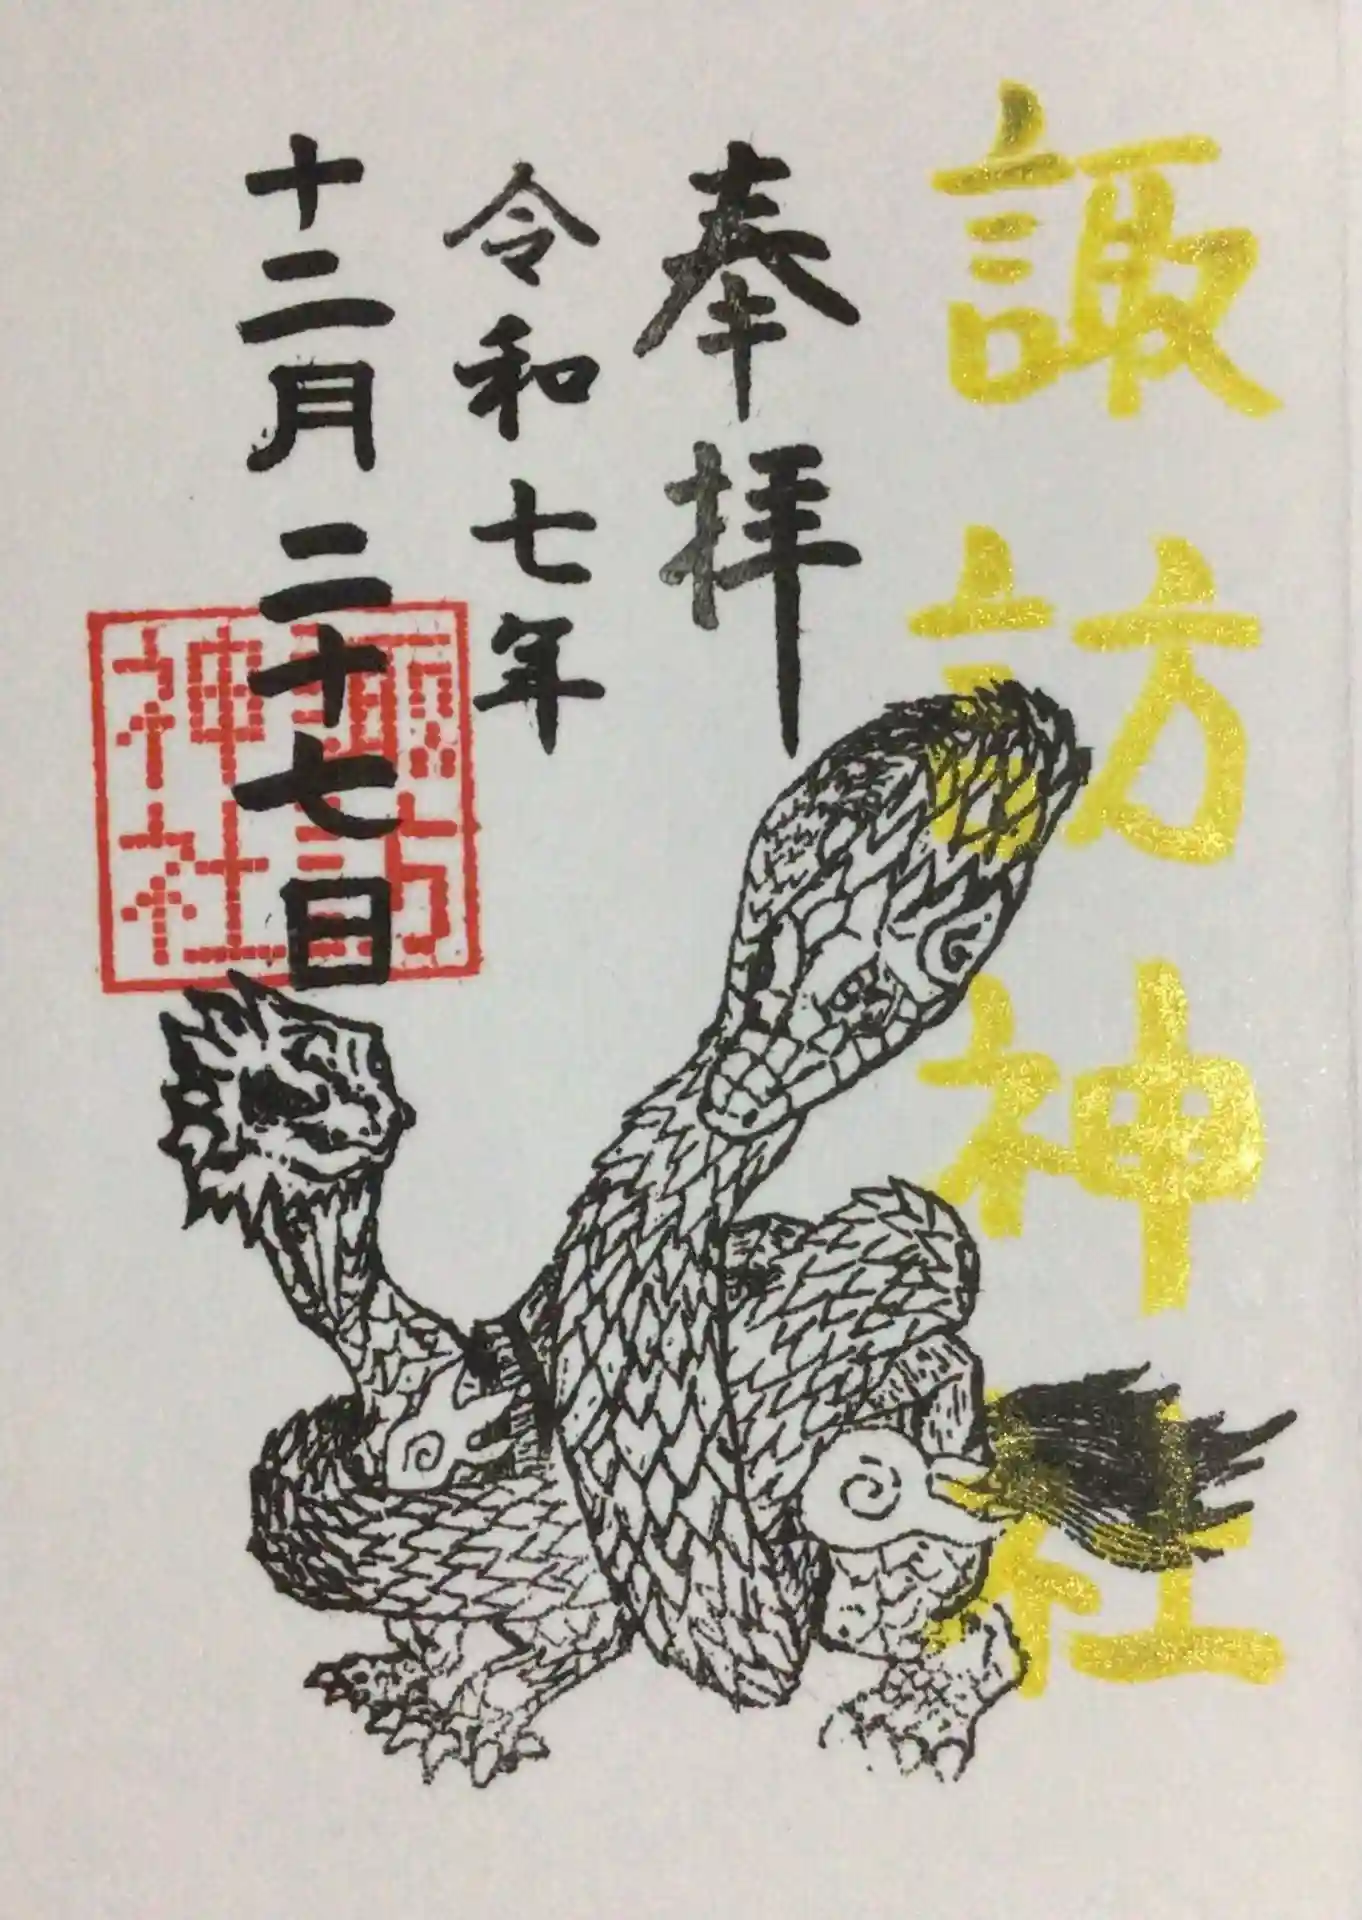 諏訪神社
奉拝
令和七年
十二月二十七日
諏訪
神社